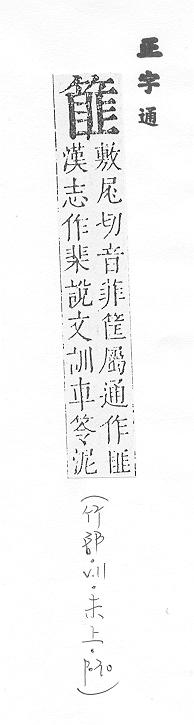 正字通
篚
敷尾切音菲筐屬通作匪
漢志作棐說文訓車笭泥
(竹部.v.11.未上.p.30)